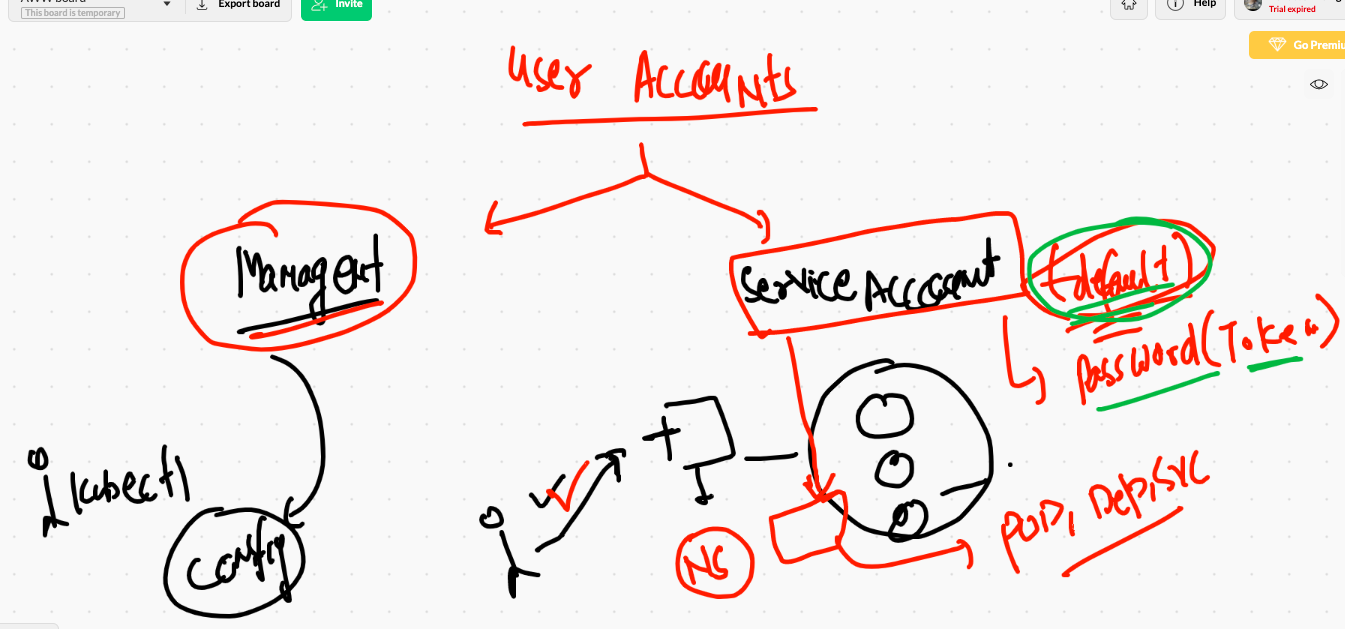 This board is temporary
Export board
Invite
Help
Trial expired
Go Premiu
User Accounts
Managent
Service Account
(default)
Password (Token)
kubectl
config
NS
POD, Dep, SVC